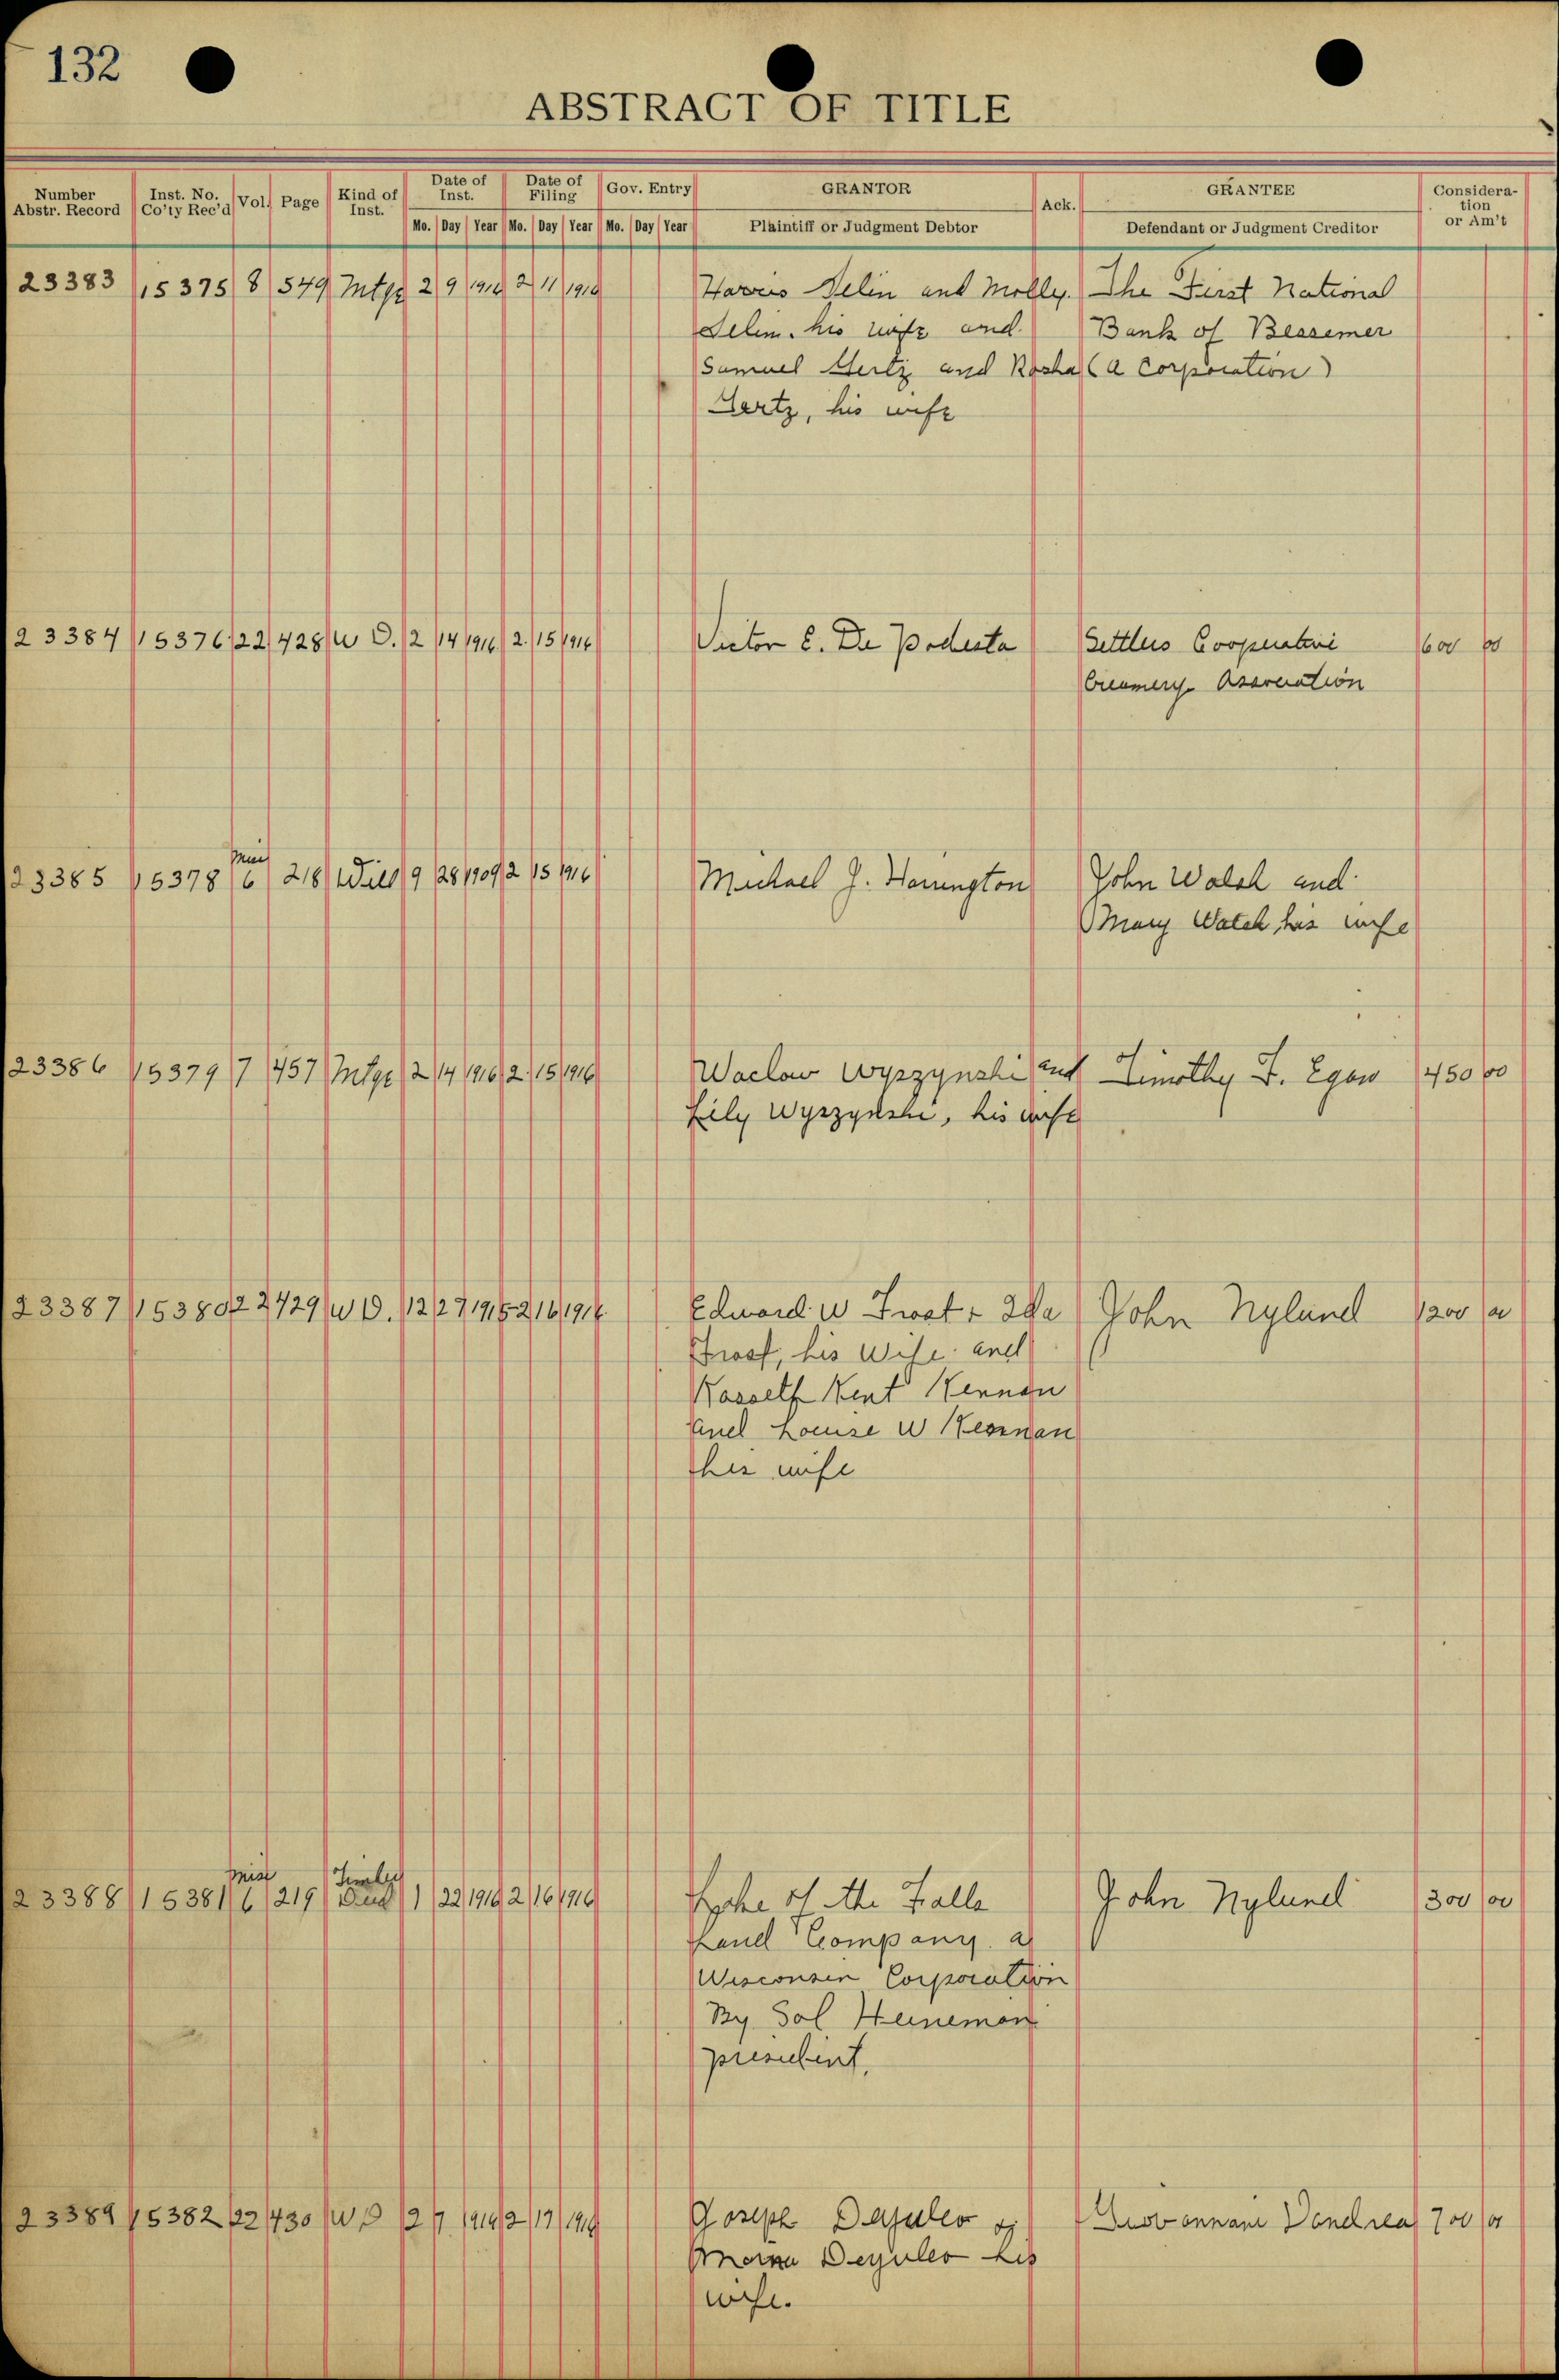 132
ABSTRACT OF TITLE
Number Abstr. Record | Inst. No. Co'ty Rec'd | Vol. | Page | Kind of Inst. | Date of Inst. Mo. Day Year | Date of Filing Mo. Day Year | Gov. Entry Mo. Day Year | GRANTOR Plaintiff or Judgment Debtor | Ack. | GRANTEE Defendant or Judgment Creditor | Consideration or Am't
23383 15375 8 549 Mtge 2 9 1916 2 11 1916 Harris Selin and Molly The First National
Selin. his wife and Bank of Bessemer
Samuel Hertz and Rosha (a Corporation)
Hertz, his wife
23384 15376 22 428 W D. 2 14 1916 2 15 1916 Victor E. De Podesta Settlers Cooperative 600 00
Creamery Association
23385 15378 Misc 6 218 Will 9 28 1909 2 15 1916 Michael J. Harrington John Walsh and
Mary Walch, his wife
23386 15379 7 457 Mtge 2 14 1916 2 15 1916 Waclaw Wyszynski and Timothy F. Egan 450 00
Lily Wyszynski, his wife
23387 15380 22 429 W D. 12 27 1915 2 16 1916 Edward W Frost & Ida John Nylund 1200 00
Frost, his Wife and
Kent Kennan
and Louise W Kennan
his wife
23388 15381 Misc 6 219 Timber Deed 1 22 1916 2 16 1916 of the Falls John Nylund 300 00
Land Company a
Wisconsin Corporation
By Sol Heineman
president.
23389 15382 22 430 W D 2 7 1916 2 17 1916 Joseph 700 00
his
wife.